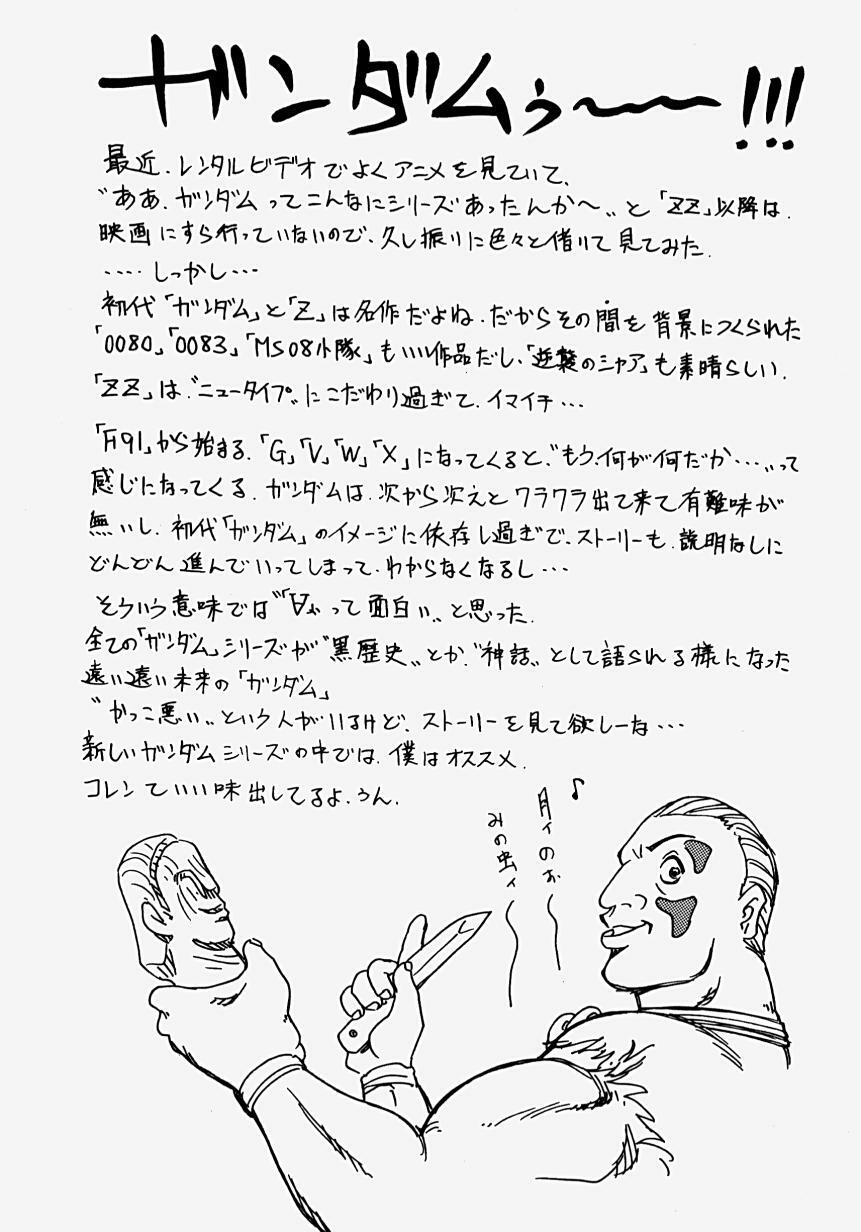 ガンダムぅ〜〜!!!
最近、レンタルビデオでよくアニメを見ていて、
〝ああ、ガンダムってこんなにシリーズあったんか〜〟と「ZZ」以降は、
映画にすら行っていないので、久し振りに色々と借りて見てみた。
‥‥しっかし…
初代「ガンダム」と「Z」は名作だよね、だからその間を背景につくられた
「0080」「0083」「MS08小隊」もいい作品だし、「逆襲のシャア」も素晴らしい、
「ZZ」は、〝ニュータイプ〟にこだわり過ぎて、イマイチ…
「F91」から始まる、「G」「V」「W」「X」になってくると、〝もう、何が何だか…〟って
感じになってくる、ガンダムは、次から次えとワラワラ出て来て有難味が
無いし、初代「ガンダム」のイメージに依存し過ぎで、ストーリーも、説明なしに
どんどん進んでいってしまって、わからなくなるし…
そういう意味では〝「∀」って面白い〟と思った。
全ての「ガンダム」シリーズが〝黒歴史〟とか、〝神話〟として語られる様になった
遠い遠い未来の「ガンダム」
〝かっこ悪い〟という人がいるけど、ストーリーを見て欲しーな…
新しいガンダムシリーズの中では、僕はオススメ。
コレンていい味出してるよ、うん。
♪
月ィのォ〜
みの虫ィ〜